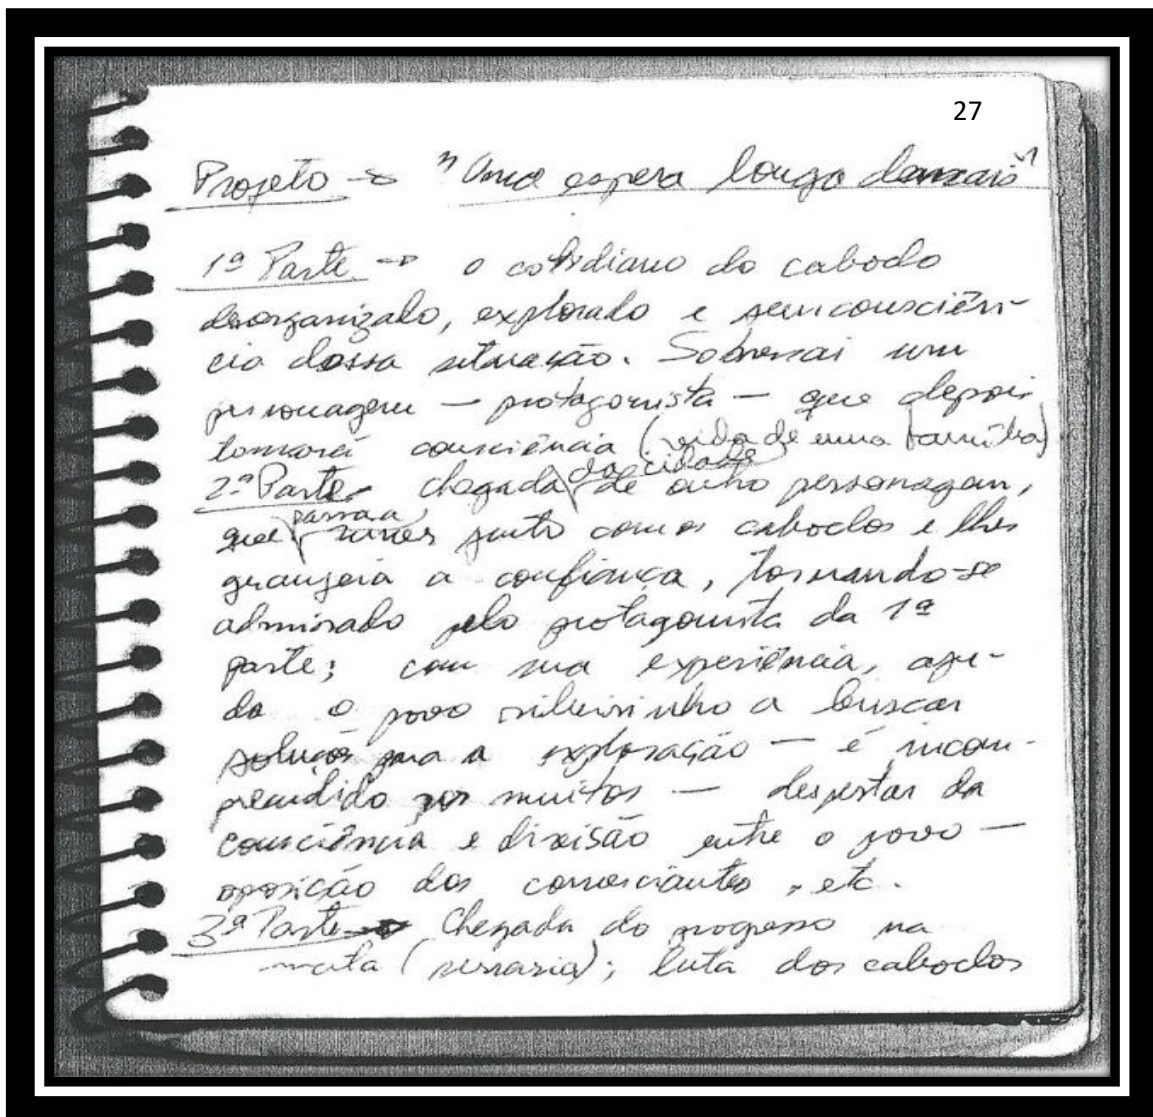 27
Projeto → "Uma espera longa demais"
1ª Parte → o cotidiano do caboclo
desorganizado, explorado e sem consciên-
cia dessa situação. Sobressai um
personagem – protagonista – que depois
tomará consciência (vida de uma família)
da cidade
2ª Parte – chegada de outro personagem,
passa a
que viver junto com os caboclos e lhes
granjeia a confiança, tornando-se
admirado pelo protagonista da 1ª
parte; com sua experiência, aju-
da o povo ribeirinho a buscar
soluções para a exploração – é incom-
preendido por muitos – despertar da
consciência e divisão entre o povo –
oposição dos comerciantes, etc.
3ª Parte → Chegada do progresso na
mata (serraria); luta dos caboclos